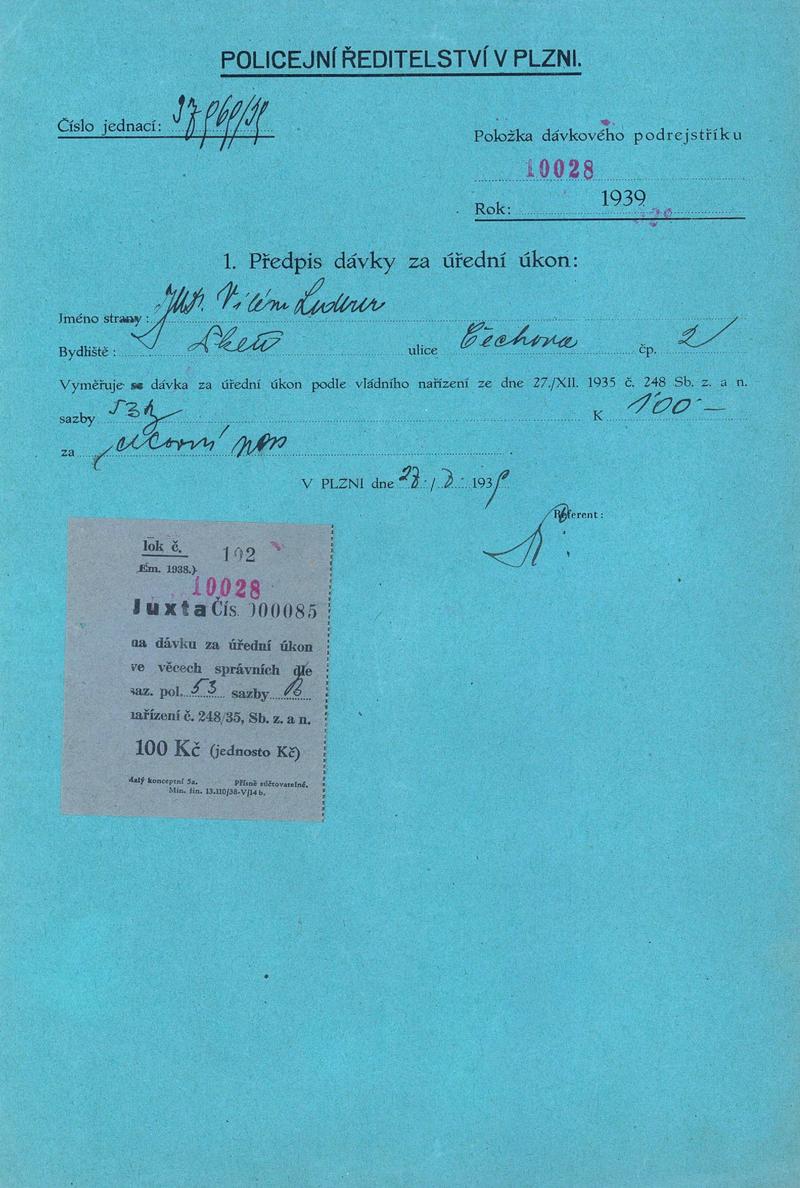 POLICEJNÍ ŘEDITELSTVÍ V PLZNI.
Číslo jednací:
Položka dávkového podrejstříku
10028
Rok: 1939
1. Předpis dávky za úřední úkon:
Jméno strany: JUDr. Vilém Lederer
Bydliště:
ulice Čechova čp. 2
Vyměřuje se dávka za úřední úkon podle vládního nařízení ze dne 27./XII. 1935 č. 248 Sb. z. a n.
sazby 53b K 100 —
za cestovní pas
V PLZNI dne 1939
Referent:
lok č. 192
Em. 1938.)
10028
Juxta Čís. 000085
na dávku za úřední úkon
ve věcech správních dle
saz. pol. 53 sazby B
nařízení č. 248/35, Sb. z. a n.
100 Kč (jednosto Kč)
Malý konceptní 5a. Přísně zúčtovatelné.
Min. fin. 13.110/38-V/14 b.